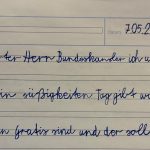 7.05.2
ter Herr Bundeskanzler ich u
in süßigkeiten Tag gibt w
n gratis sind und der soll